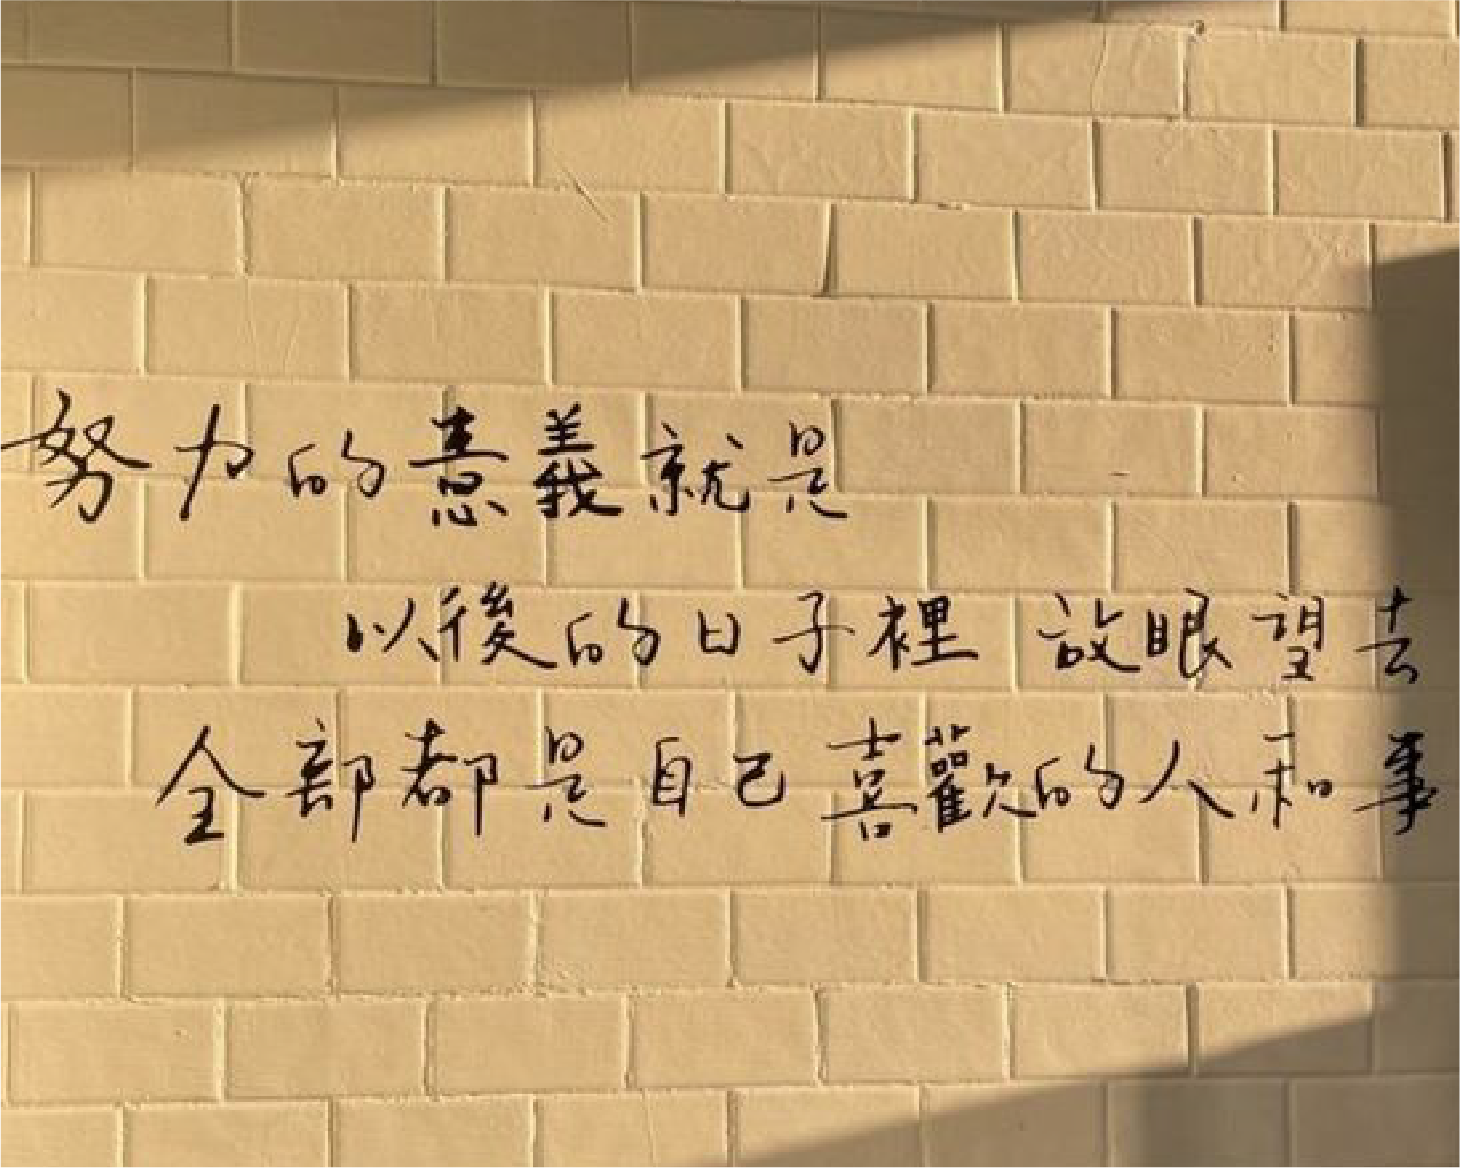 努力的意義就是
以後的日子裡 放眼望去
全部都是自己喜歡的人和事